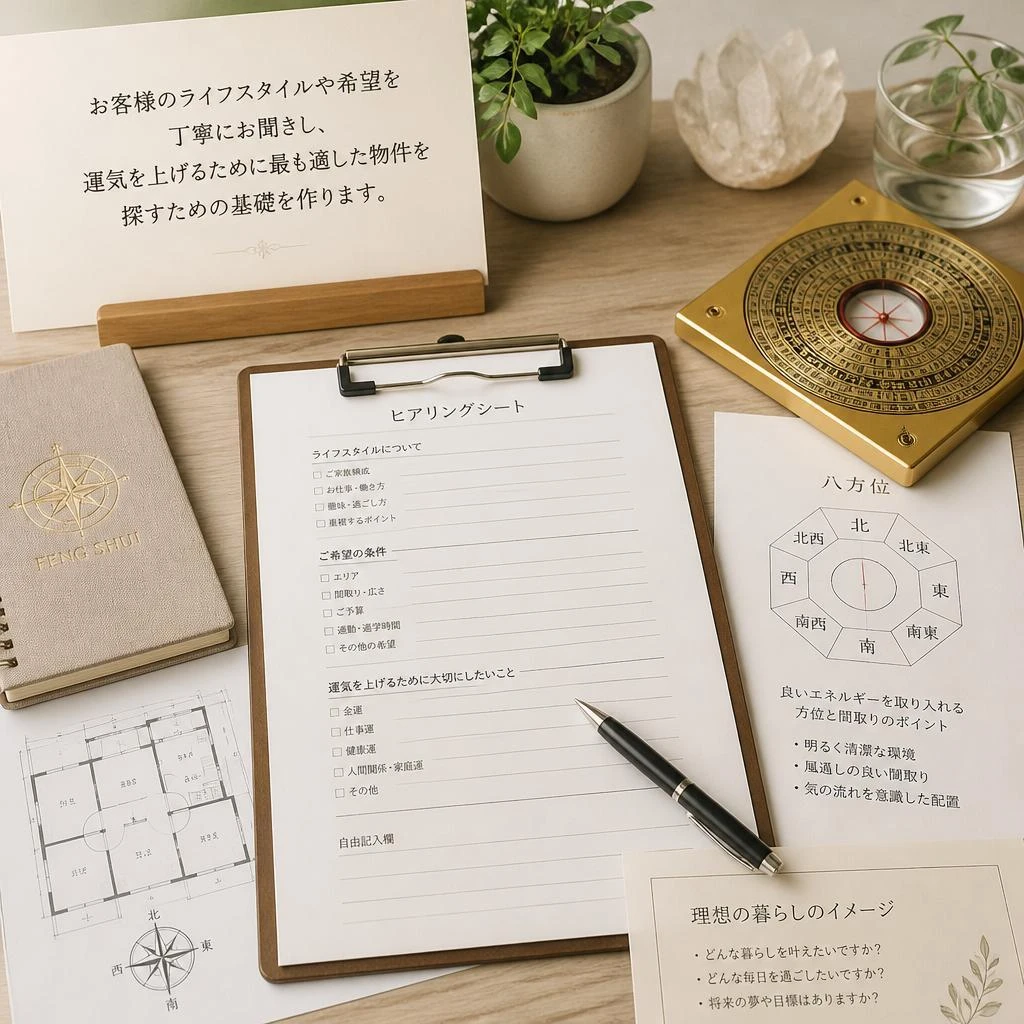 お客様のライフスタイルや希望を
丁寧にお聞きし、
運気を上げるために最も適した物件を
探すための基礎を作ります。
FENG SHUI
ヒアリングシート
ライフスタイルについて
ご家族構成
お仕事・働き方
趣味・過ごし方
重視するポイント
ご希望の条件
エリア
間取り・広さ
ご予算
通勤・通学時間
その他の希望
運気を上げるために大切にしたいこと
金運
仕事運
健康運
人間関係・家庭運
その他
自由記入欄
八方位
北
北西
北東
西
東
南西
南東
南
良いエネルギーを取り入れる
方位と間取りのポイント
・明るく清潔な環境
・風通しの良い間取り
・気の流れを意識した配置
北
西
東
南
理想の暮らしのイメージ
・どんな暮らしを叶えたいですか?
・どんな毎日を過ごしたいですか?
・将来の夢や目標はありますか?